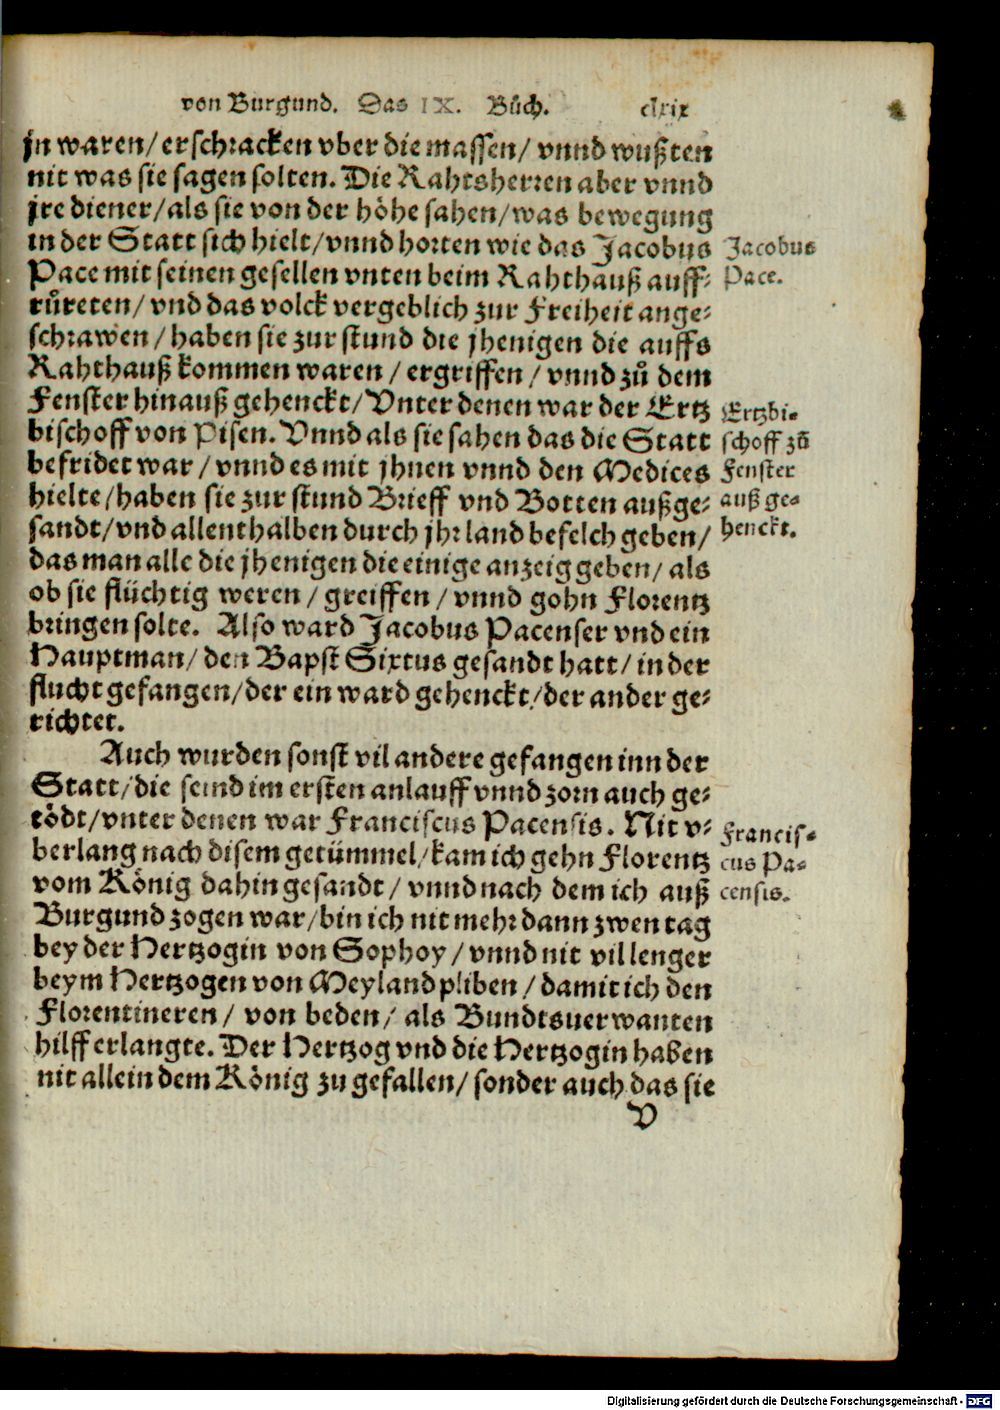 von Burgund. Das IX. Bůch. clxix
jn waren/ erschracken vber die massen/ vnnd wußten
nit was sie sagen solten. Die Rahtsherren aber vnnd
jre diener/ als sie von der höhe sahen/ was bewegung
in der Statt sich hielt/ vnnd horten wie das Jacobus
Pace mit seinen gesellen vnten beim Rahthauß auff-
růreten/ vnd das volck vergeblich zur Freiheit ange-
schrawen/ haben sie zur stund die jhenigen die auffs
Rahthauß kommen waren/ ergriffen/ vnnd zů dem
Fenster hinauß gehenckt/ Vnter denen war der Ertz
bischoff von Pisen. Vnnd als sie sahen das die Statt
befridet war/ vnnd es mit jhnen vnnd den Medices
hielte/ haben sie zur stund Brieff vnd Botten außge-
sandt/ vnd allenthalben durch jhr land befelch geben/
das man alle die jhenigen die einige anzeig geben/ als
ob sie flüchtig weren/ greiffen/ vnnd gohn Florentz
bringen solte. Also ward Jacobus Pacenser vnd ein
Hauptman/ den Bapst Sixtus gesandt hatt/ in der
flucht gefangen/ der ein ward gehenckt/ der ander ge-
richtet.
Auch wurden sonst vil andere gefangen inn der
Statt/ die seind im ersten anlauff vnnd zorn auch ge-
tödt/ vnter denen war Franciscus Pacensis. Nit v-
berlang nach disem getümmel/ kam ich gehn Florentz
vom König dahin gesandt/ vnnd nach dem ich auß
Burgund zogen war/ bin ich nit mehr dann zwen tag
bey der Hertzogin von Sophoy/ vnnd nit vil lenger
beym Hertzogen von Meyland pliben/ damit ich den
Florentineren/ von beden/ als Bundtsuerwanten
hilff erlangte. Der Hertzog vnd die Hertzogin haben
nit allein dem König zu gefallen/ sonder auch das sie
V
Jacobus
Pace.
Ertzbi-
schoff zů
Fenster
auß ge-
henckt.
Francis-
cus Pa-
censis.
Digitalisierung gefördert durch die Deutsche Forschungsgemeinschaft - DFG